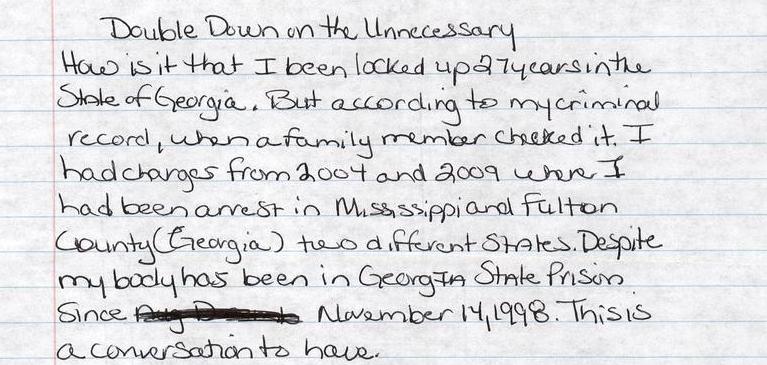 Double Down on the Unnecessary
How is it that I been locked up 27 years in the
State of Georgia. But according to my criminal
record, when a family member checked it. I
had charges from 2004 and 2009 where I
had been arrest in Mississippi and Fulton
County (Georgia) two different States. Despite
my body has been in Georgia State Prison
Since November 14, 1998. This is
a conversation to have.